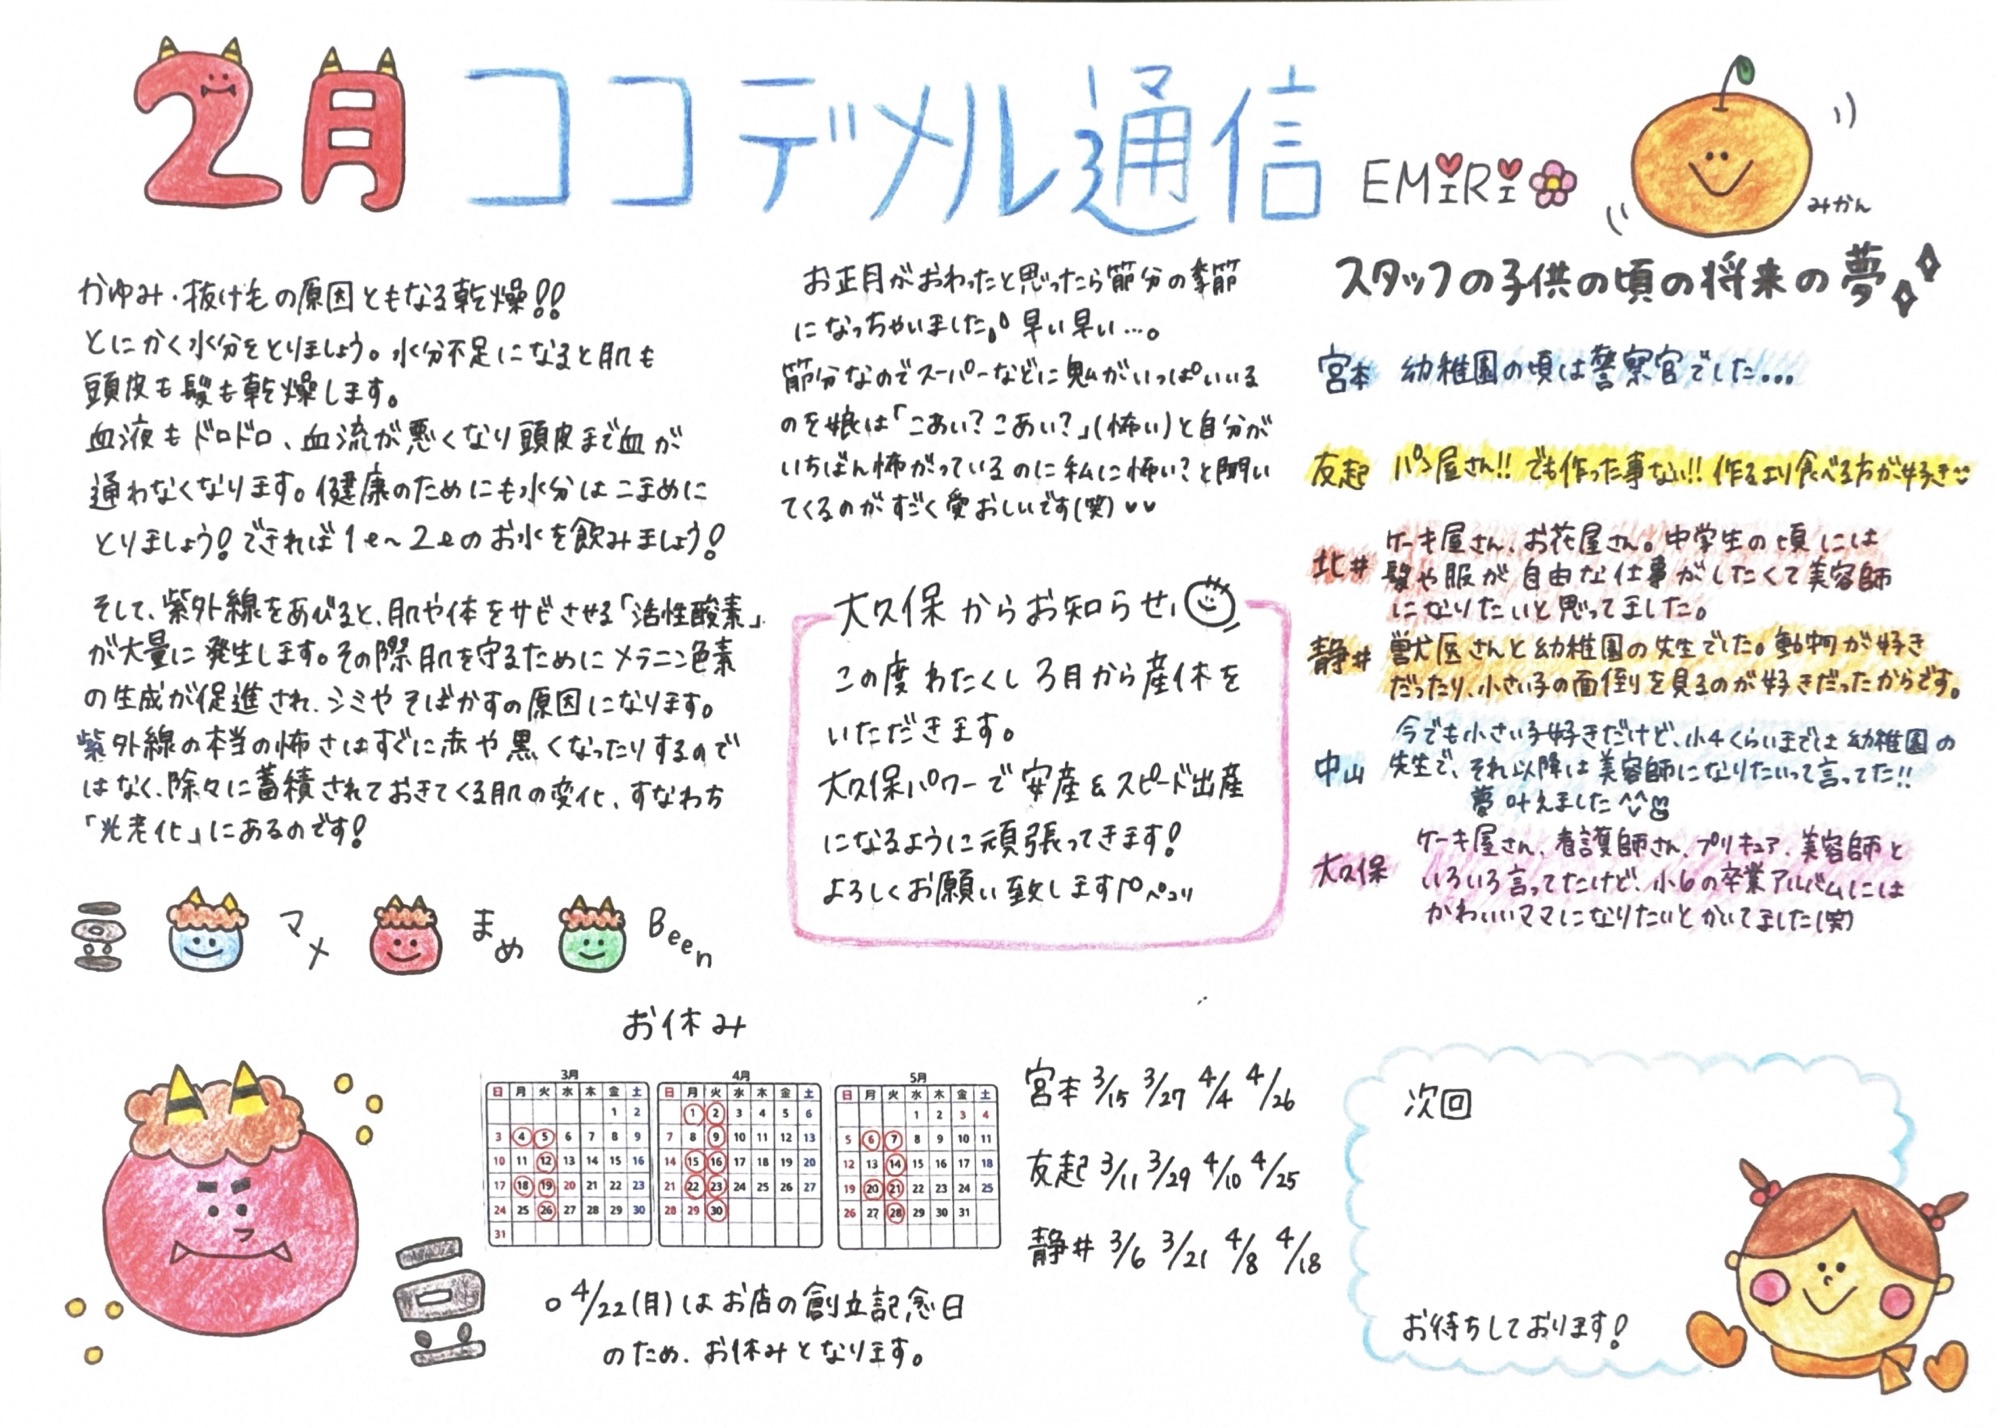 2月 ココデメル通信 EMiRi
みかん
かゆみ・抜け毛の原因ともなる乾燥!!
とにかく水分をとりましょう。水分不足になると肌も
頭皮も髪も乾燥します。
血液もドロドロ、血流が悪くなり頭皮まで血が
通わなくなります。健康のためにも水分はこまめに
とりましょう!できれば1ℓ〜2ℓのお水を飲みましょう!
そして、紫外線をあびると、肌や体をサビさせる「活性酸素」
が大量に発生します。その際肌を守るためにメラニン色素
の生成が促進され、シミやそばかすの原因になります。
紫外線の本当の怖さはすぐに赤や黒くなったりするので
はなく、除々に蓄積されておきてくる肌の変化、すなわち
「光老化」にあるのです!
豆 マメ まめ Been
お正月がおわったと思ったら節分の季節
になっちゃいました。早い早い…。
節分なのでスーパーなどに鬼がいっぱいいる
のを娘は「こあい?こあい?」(怖い)と自分が
いちばん怖がっているのに私に怖い?と聞い
てくるのがすごく愛おしいです(笑)
大久保からお知らせ
この度わたくし3月から産休を
いただきます。
大久保パワーで安産&スピード出産
になるように頑張ってきます!
よろしくお願い致します ペコリ
スタッフの子供の頃の将来の夢
宮本 幼稚園の頃は警察官でした...
友起 パン屋さん!!でも作った事ない!!作るより食べる方が好き
北井 ケーキ屋さん、お花屋さん。中学生の頃には
髪や服が自由な仕事がしたくて美容師
になりたいと思ってました。
静井 獣医さんと幼稚園の先生でした。動物が好き
だったり、小さい子の面倒を見るのが好きだったからです。
中山 今でも小さい子好きだけど、小4くらいまでは幼稚園の
先生で、それ以降は美容師になりたいって言ってた!!
夢叶えました^^
大久保 ケーキ屋さん、看護師さん、プリキュア、美容師と
いろいろ言ってたけど、小6の卒業アルバムには
かわいいママになりたいとかいてました(笑)
豆
お休み
3月
日 月 火 水 木 金 土
1 2
3 4 5 6 7 8 9
10 11 12 13 14 15 16
17 18 19 20 21 22 23
24 25 26 27 28 29 30
31
4月
日 月 火 水 木 金 土
1 2 3 4 5 6
7 8 9 10 11 12 13
14 15 16 17 18 19 20
21 22 23 24 25 26 27
28 29 30
5月
日 月 火 水 木 金 土
1 2 3 4
5 6 7 8 9 10 11
12 13 14 15 16 17 18
19 20 21 22 23 24 25
26 27 28 29 30 31
○4/22(月)はお店の創立記念日
のため、お休みとなります。
宮本 3/15 3/27 4/4 4/26
友起 3/11 3/29 4/10 4/25
静井 3/6 3/21 4/8 4/18
次回
お待ちしております!